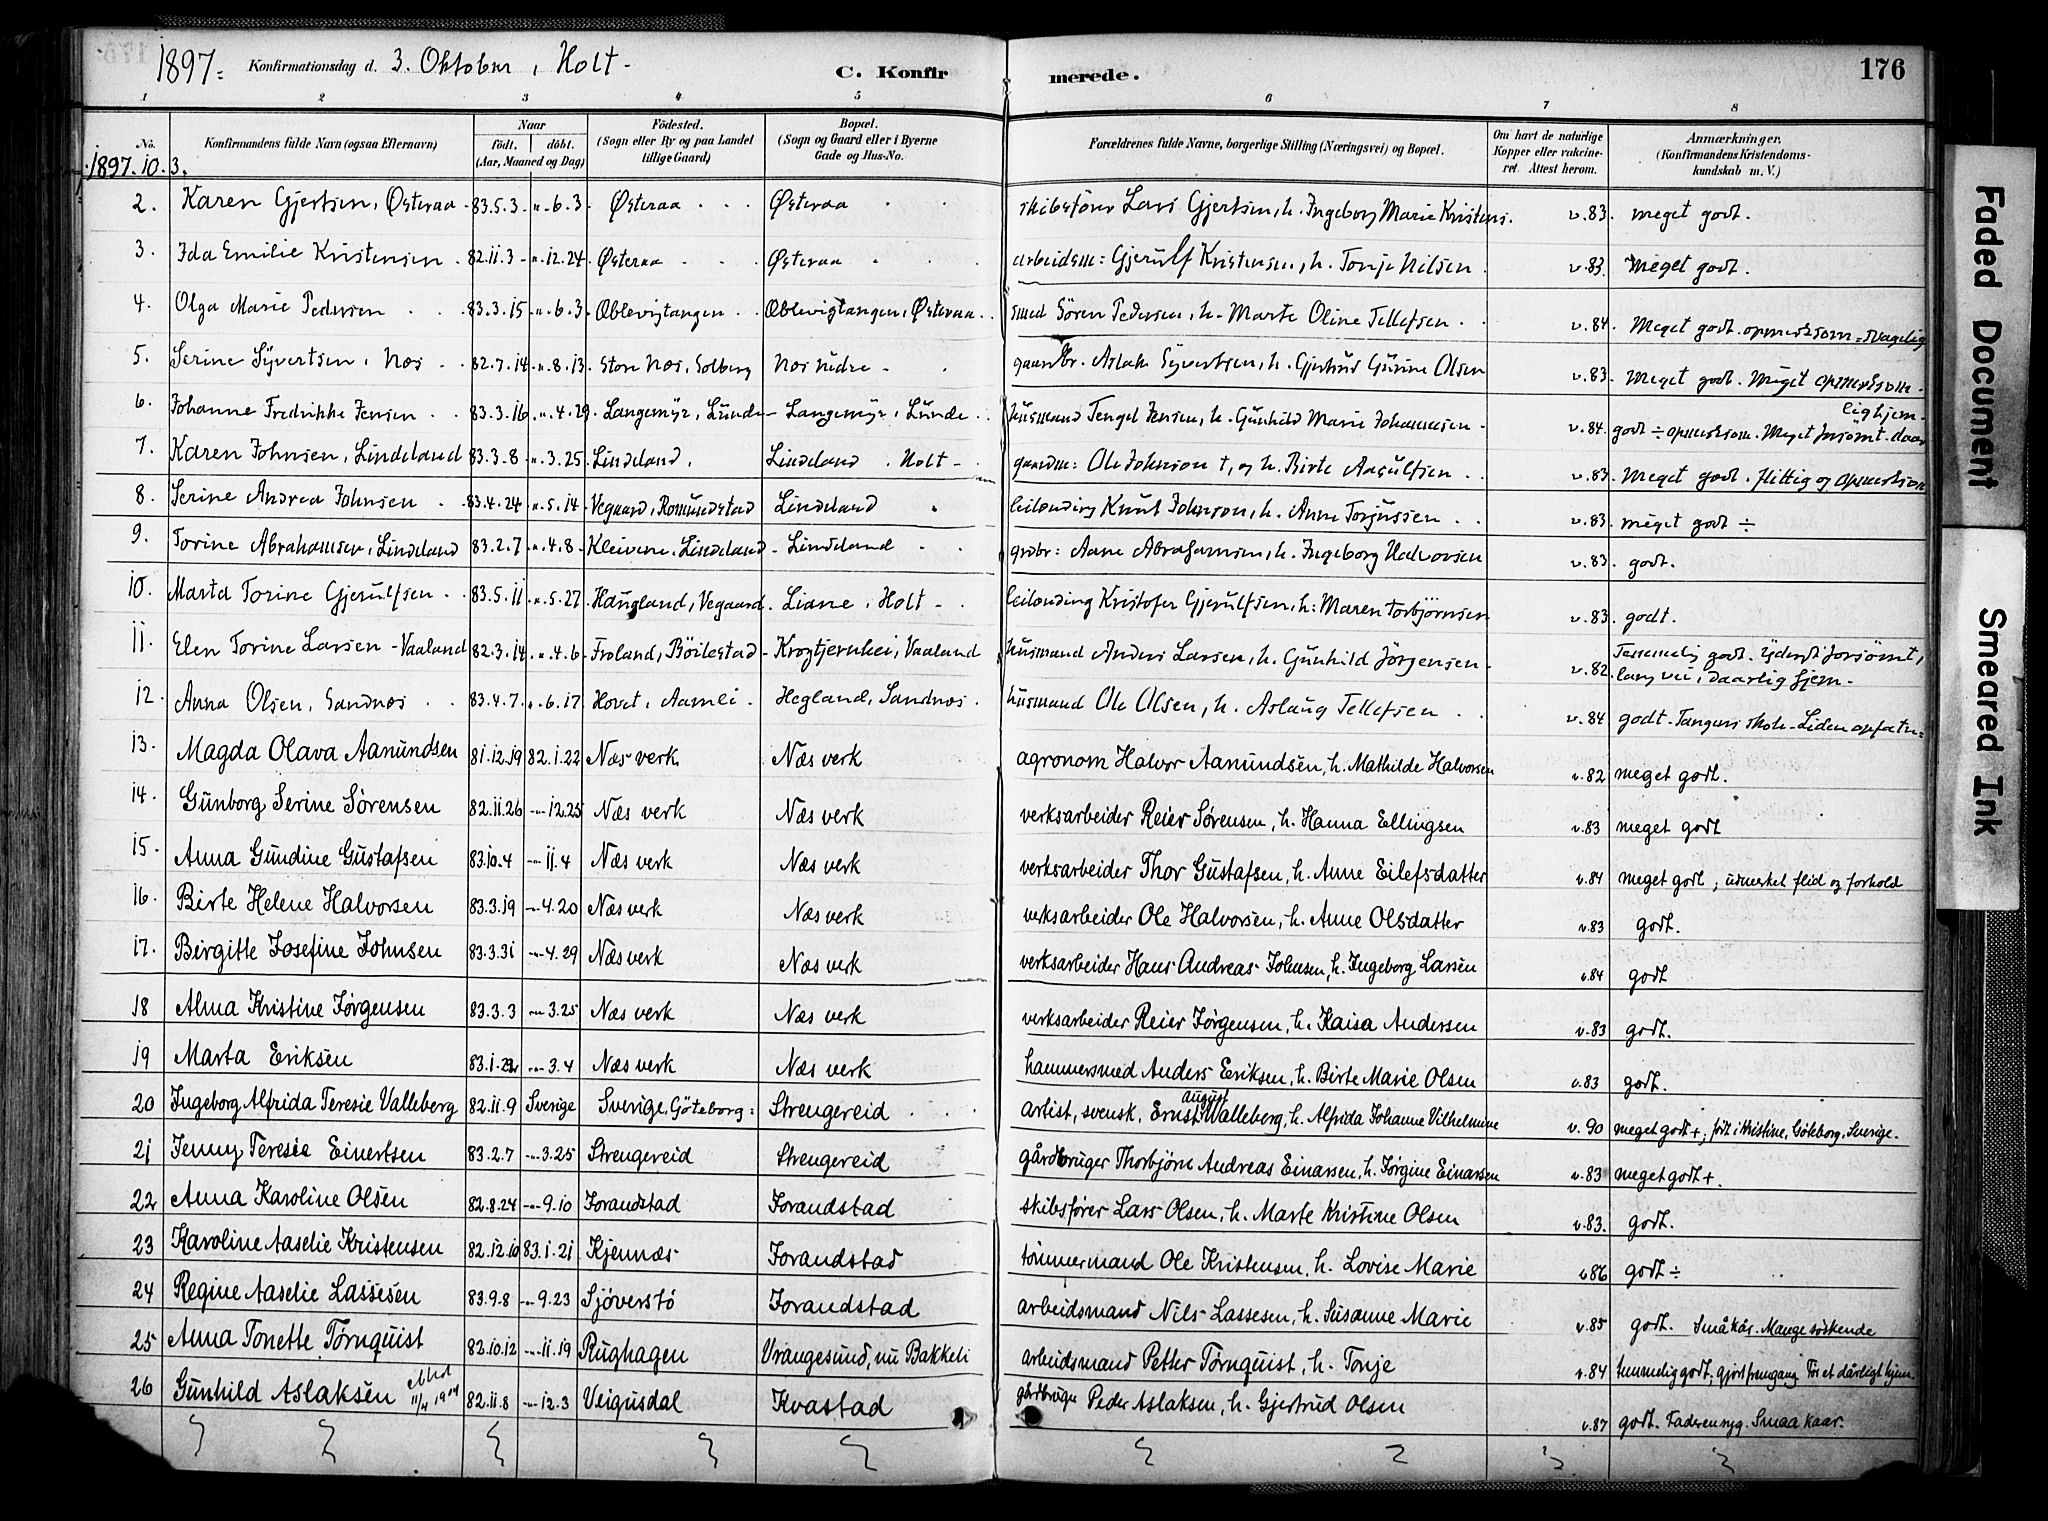 1897. Konfirmationsdag d. 3. Oktober, i Holt. C. Konfirmerede. 176
1 2 3 4 5 6 7 8
No. Konfirmandens fulde Navn (ogsaa Efternavn) Naar født. døbt. (Aar, Maaned og Dag) Fødested. (Sogn eller By og paa Landet tillige Gaard) Bopæl. (Sogn og Gaard eller i Byerne Gade og Hus-No. Forældrenes fulde Navne, borgerlige Stilling (Næringsvei) og Bopæl. Om havt de naturlige Kopper eller vakcineret. Attest herom. Anmærkninger. (Konfirmandens Kristendomskundskab m. V.)
1897.10.3.
2. Karen Gjertsen, Østeraa 83.5.3 -"-6.3 Østeraa Østeraa skibsfører Lars Gjertsen, h. Ingeborg Marie Kristens. v.83. meget godt.
3. Ida Emilie Kristensen 82.11.3 -"-12.24 Østeraa Østeraa arbeidsm: Gjerulf Kristensen, h. Tonje Nilsen v.83. Meget godt.
4. Olga Marie Pedersen 83.3.15 -"-6.3 Oblevigtangen Oblevigtangen, Østeraa smed Sören Pedersen, h. Marte Oline Tellefsen v.84. Meget godt. opmerksom = svagelig
5. Serine Syvertsen, Næs 82.7.14 -"-8.13 Store Næs, Solberg Næs nidre gaardbr. Aslak Syvertsen, h. Gjertrud Gurine Olsen v.83. Meget godt. Meget opmerksom
6. Johanne Fredrikke Jensen 83.3.16 -"-4.29 Langemyr, Lunde Langemyr, Lunde husmand Tengel Jensen, h. Gunhild Marie Johannesen v.84. godt ÷ opmerksom. Meget forsömt. daarlig hjem
7. Karen Johnsen, Lindeland 83.3.8 -"-3.25 Lindeland Lindeland, Holt gaardm: Ole Johnson †, og h. Birte Aasulfsen v.83. Meget godt. flittig og opmerksom
8. Serine Andrea Johnsen 83.4.24 -"-5.14 Vegaard, Romundstad Lindeland leilending Knut Johnson, h. Anne Torjussen v.83. meget godt ÷
9. Torine Abrahamsen, Lindeland 83.2.7 -"-4.8 Kleivene, Lindeland Lindeland grdbr: Aane Abrahamsen, h. Ingeborg Halvorsen v.83. godt.
10. Marta Torine Gjerulfsen 83.5.11 -"-5.27 Haugland, Vegaard Liane, Holt leilending Kristofer Gjerulfsen, h: Maren Torbjörnsen v.83. godt.
11. Elen Torine Larsen - Vaaland 82.3.14 -"-4.6 Froland, Böilestad Krogtjernhei, Vaaland husmand Anders Larsen, h. Gunhild Jörgensen v.82. Temmelig godt. Yderst forsömt, lang vei, daarlig hjem
12. Anna Olsen, Sandnæs 83.4.7 -"-6.17 Hovet, Aamli Hegland, Sandnæs husmand Ole Olsen, h. Aslaug Tellefsen v.84 godt - Tangens skole - Liden opfatn:
13. Magda Olava Aanundsen 81.12.19 82.1.22 Næs verk Næs verk agronom Halvor Aanundsen, h. Mathilde Halvorsen v.82 meget godt.
14. Gunborg Serine Sørensen 82.11.26 -"-12.25 Næs verk Næs verk verksarbeider Reier Sørensen, h. Hanna Ellingsen v.83 meget godt
15. Anna Gundine Gustafsen 83.10.4 -"-11.4 Næs verk Næs verk verksarbeider Thor Gustafsen, h. Anne Eilefsdatter v.84 meget godt; udmerket flid og forhold
16. Birte Helene Halvorsen 83.3.19 -"-4.20 Næs verk Næs verk verksarbeider Ole Halvorsen, h. Anne Olsdatter v.83 godt.
17. Birgitte Josefine Johnsen 83.3.31 -"-4.29 Næs verk Næs verk verksarbeider Hans Andreas Johnsen, h. Ingeborg Larsen v.84 godt
18 Alma Kristine Jørgensen 83.3.3 -"-3.25 Næs verk Næs verk verksarbeider Reier Jørgensen, h. Kaisa Andersen v.83 godt.
19 Marta Eriksen 83.1.22 -"-3.4 Næs verk Næs verk hammersmed Anders Eriksen, h. Birte Marie Olsen v.83 godt.
20 Ingeborg Alfrida Teresie Valleberg 82.11.9 Sverige Sverige, Göteborg: Strengereid artist, svensk, Ernst August Walleberg, h. Alfrida Johanne Vilhelmine v.90 meget godt +; født i Kristine, Göteborg, Sverige.
21 Jenny Teresie Einertsen 83.2.7 -"-3.25 Strengereid Strengereid gårdbruger Thorbjörn Andreas Einarsen, h. Jørgine Einarsen v.83 meget godt +.
22 Anna Karoline Olsen 82.8.24 -"-9.10 Forandstad Forandstad skibsfører Lars Olsen, h. Marte Kristine Olsen v.83. godt.
23 Karoline Aaselie Kristensen 82.12.10 83.1.21 Kjennæs Forandstad tömmermand Ole Kristensen, h. Lovise Marie v.86 godt ÷
24 Regine Aaselie Lassesen 83.9.8 -"-9.23 Sjöverstö Forandstad arbeidsmand Nils Lassesen, h. Susanne Marie v.85 godt. Små kår. Mange söskende
25 Anna Tonette Tørnquist 82.10.12 -"-11.19 Rughagen Vrangesund, nu Bakkeli arbeidsmand Petter Tørnquist, h. Tonje v.84 temmelig godt. gjort fremgang for et dårligt hjem.
26 Gunhild Aslaksen 11/4 1904 82.11.8 -"-12.3 Veigusdal Kvastad gårdbruger Peder Aslaksen, h. Gjertrud Olsen v.87 godt. Faderen syg. Smaa kaar.
Faded Document
Smeared Ink